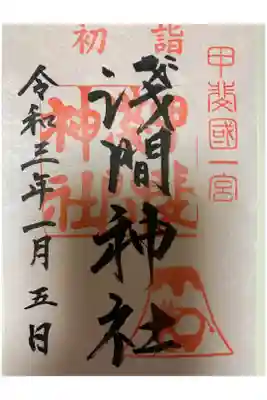 初詣
甲斐國一宮
浅間神社
神社
令和三年一月五日